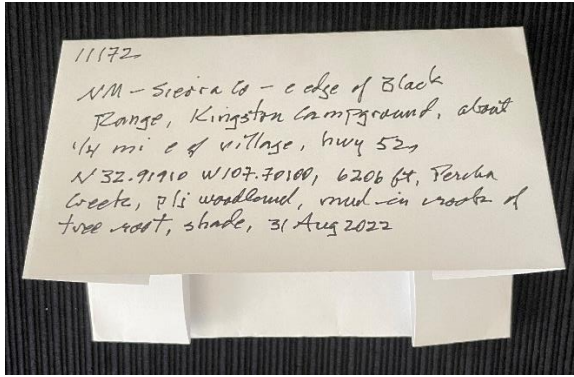 11172
NM - Sierra Co - e edge of Black
Range, Kingston Campground, about
1/4 mi e of village, hwy 52,
N 32.91910 W107.70100, 6206 ft, Percha
Creek, p/j woodland, mud in crook of
tree root, shade, 31 Aug 2022